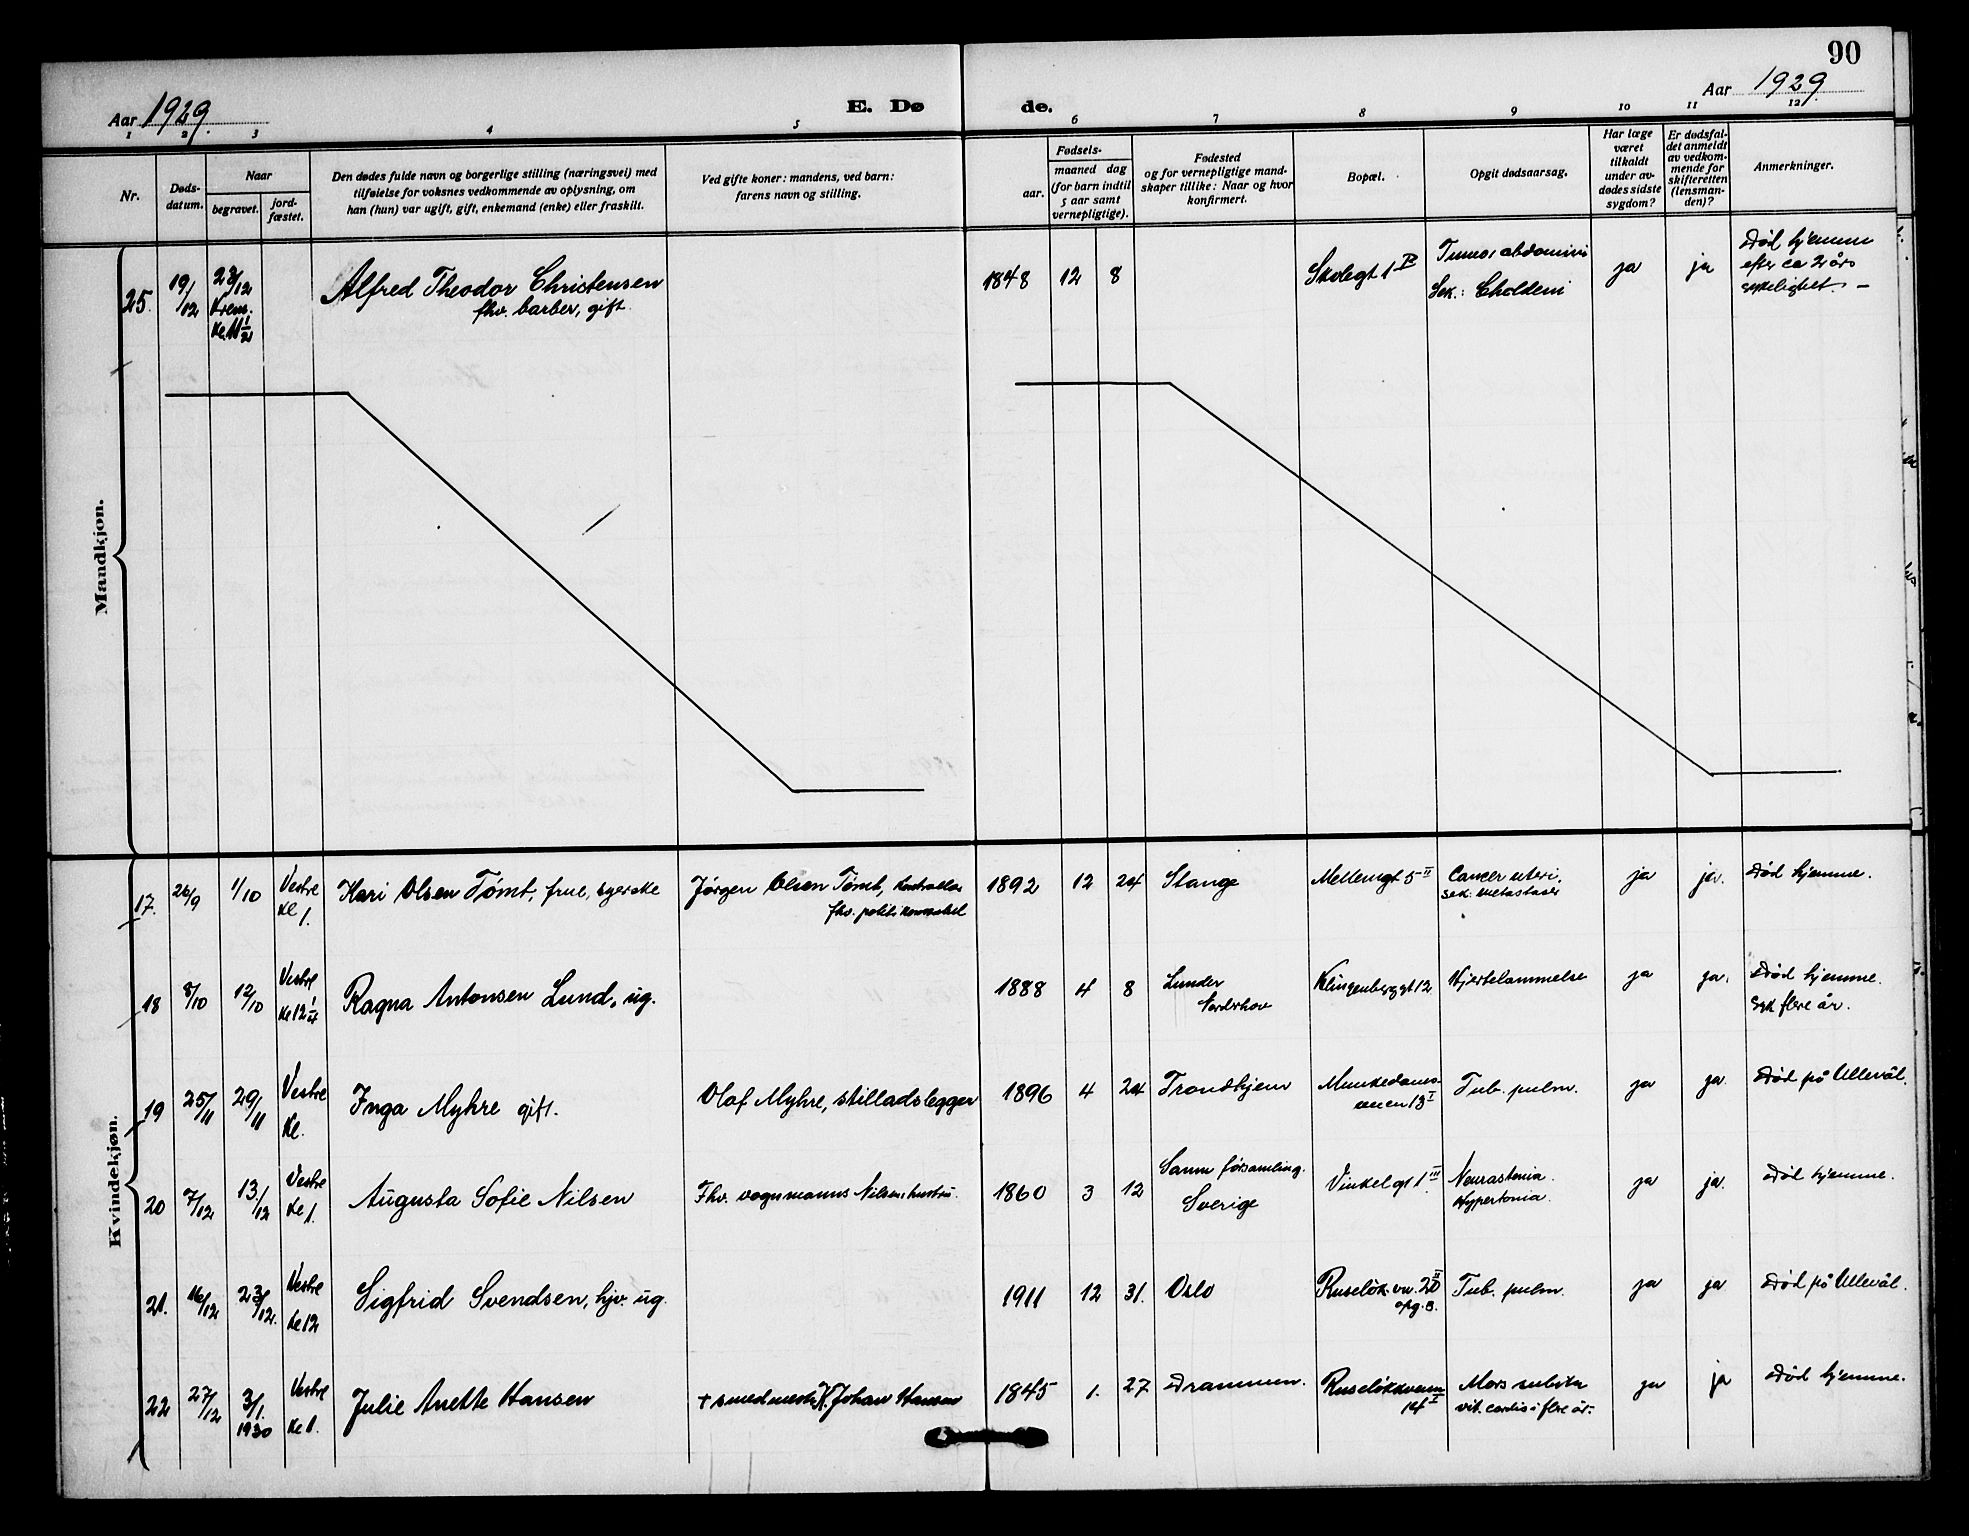 90
Aar 1929. E. Døde. Aar 1929.
1 2 3 4 5 6 7 8 9 10 11 12
Nr.
Dødsdatum.
Naar
begravet.
jordfæstet.
Den dødes fulde navn og borgerlige stilling (næringsvei) med
tilføielse for voksnes vedkommende av oplysning, om
han (hun) var ugift, gift, enkemand (enke) eller fraskilt.
Ved gifte koner: mandens, ved barn:
farens navn og stilling.
Fødsels-
aar.
maaned dag
(for barn indtil
5 aar samt
vernepligtige).
Fødested
og for vernepligtige mand-
skaper tillike: Naar og hvor
konfirmert.
Bopæl.
Opgit dødsaarsag.
Har læge
været
tilkaldt
under av-
dødes sidste
sygdom?
Er dødsfal-
det anmeldt
av vedkom-
mende for
skifteretten
(lensman-
den)?
Anmerkninger.
Mandkjøn.
25. 19/12 23/12 Krem. kl. 11 1/2 Alfred Theodor Christensen
fhv. barber, gift.
1848 12 8 Skolegt 1 Tumor abdomini
Sek.: ja ja Død hjemme
efter ca 2 års
sykelighet. –
Kvindekjøn.
17. 26/9 1/10 Vestre kl 1. Kari Olsen Tømt, frue, syerske Jørgen Olsen Tømt, kontrollør
fhv. politikonstabel
1892 12 24 Stange Mellemgt 5 II Cancer uteri.
sek. metastaser ja ja. Død hjemme.
18 8/10 12/10 Vestre kl 12 1/4 Ragna Antonsen Lund, ug. 1888 4 8 Lunder
Norderhov Klingenberggt 12 Hjertelammelse ja ja. Død hjemme.
Syk flere år.
19 25/11 29/11 Vestre kl. Inga Myhre gift. Olaf Myhre, stilladslegger 1896 4 24 Trondhjem Munkedams-
veien 13 I Tub. pulm. ja ja Død på Ullevål.
20 7/12 13/12 Vestre kl 1. Augusta Sofie Nilsen Fhv. vognmanns Nilsens hustru. 1860 3 12 Sann församling.
Sverige Vinkelgt 1 III Neurastenia.
Hypertonia. ja ja. Død hjemme.
21. 16/12 23/12. Vestre kl 12 Sigfrid Svendsen, hjv. ug. 1911 12 31. Oslo Ruseløkvn. 20 II
opg. B. Tub. pulm. ja ja Død på Ullevål.
22 27/12 3/1. 1930 Vestre kl 1. Julie Anette Hansen + smedmester H. Johan Hansen 1845 1. 27 Drammen. Ruseløkveien
14 I Mors subita
vit. cordis i flere år. ja ja Død hjemme.